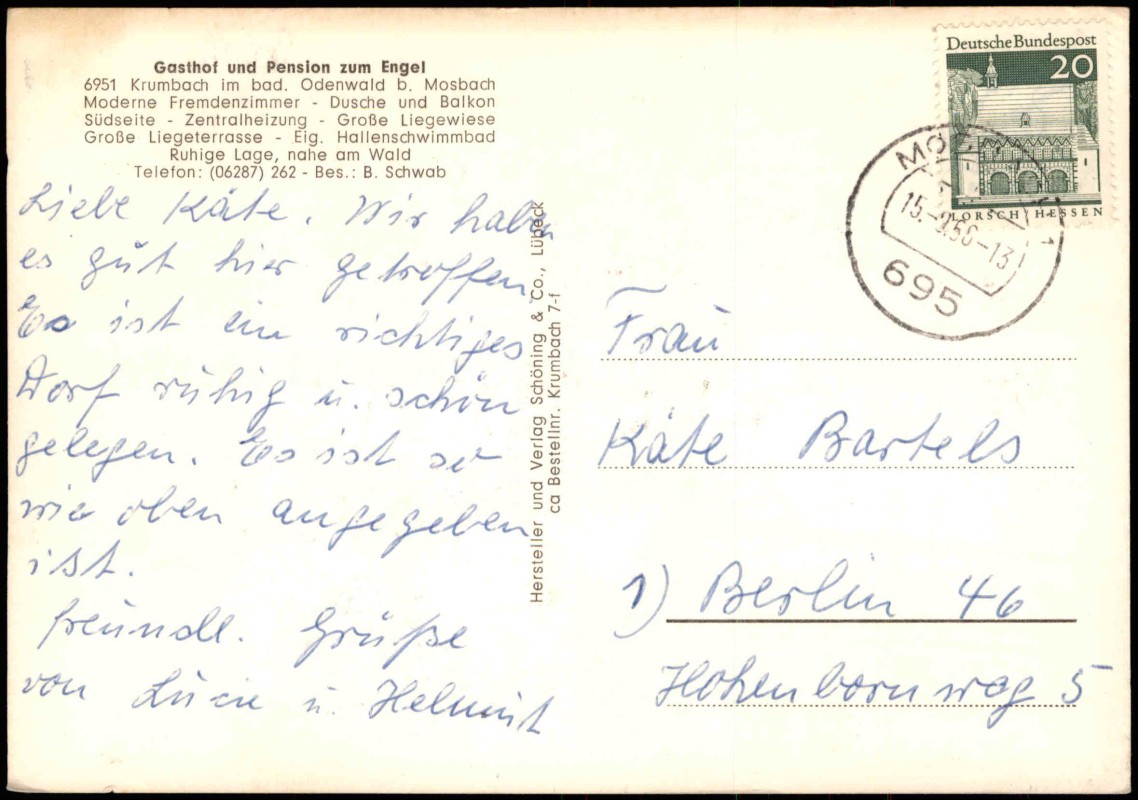 Gasthof und Pension zum Engel
6951 Krumbach im bad. Odenwald b. Mosbach
Moderne Fremdenzimmer - Dusche und Balkon
Südseite - Zentralheizung - Große Liegewiese
Große Liegeterrasse - Eig. Hallenschwimmbad
Ruhige Lage, nahe am Wald
Telefon: (06287) 262 - Bes.: B. Schwab
Liebe Käte. Wir haben
es gut hier getroffen.
Es ist ein richtiges
Dorf ruhig u. schön
gelegen. Es ist so
wie oben angegeben
ist.
freundl. Grüße
von Lucie u. Helmut
Hersteller und Verlag Schöning & Co., Lübeck
ca Bestellnr. Krumbach 7-f
Deutsche Bundespost
20
LORSCH/HESSEN
695
Frau
Käte Bartels
1) Berlin 46
Hohenbornweg 5